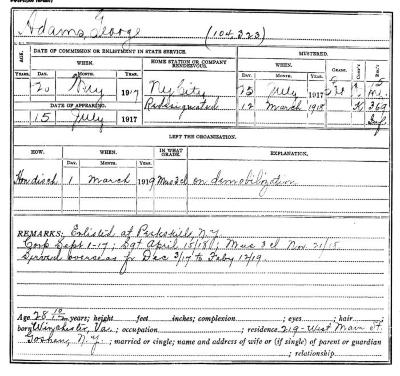 Adams, George
(104,323)
DATE OF COMMISSION OR ENLISTMENT IN STATE SERVICE.
MUSTERED.
AGE.
WHEN.
HOME STATION OR COMPANY RENDEZVOUS.
WHEN.
GRADE.
CO'Y.
REG'T.
YEARS.
DAY.
MONTH.
YEAR.
DAY.
MONTH.
YEAR.
20
1917
N.Y. City
25
July
1917
15
DATE OF APPEARING.
Redesignated
12
March
1918
K
369
15
July
1917
Inf
LEFT THE ORGANIZATION.
HOW.
WHEN.
IN WHAT GRADE.
EXPLANATION.
DAY.
MONTH.
YEAR.
Hon disch
1
March
1919
Mus 3 cl
on demobilization
REMARKS: Enlisted at Peekskill, N.Y.
Corp Sept 1-17; Sgt April 15/18; Mus 3 cl Nov. 21/18.
Served overseas fr Dec 3/17 to Feby 12/19.
Age 28 years; height feet inches; complexion ; eyes ; hair
born Winchester, Va.; occupation ; residence 219-West Main St.
Goshen, N.Y.; married or single; name and address of wife or (if single) of parent or guardian
; relationship.